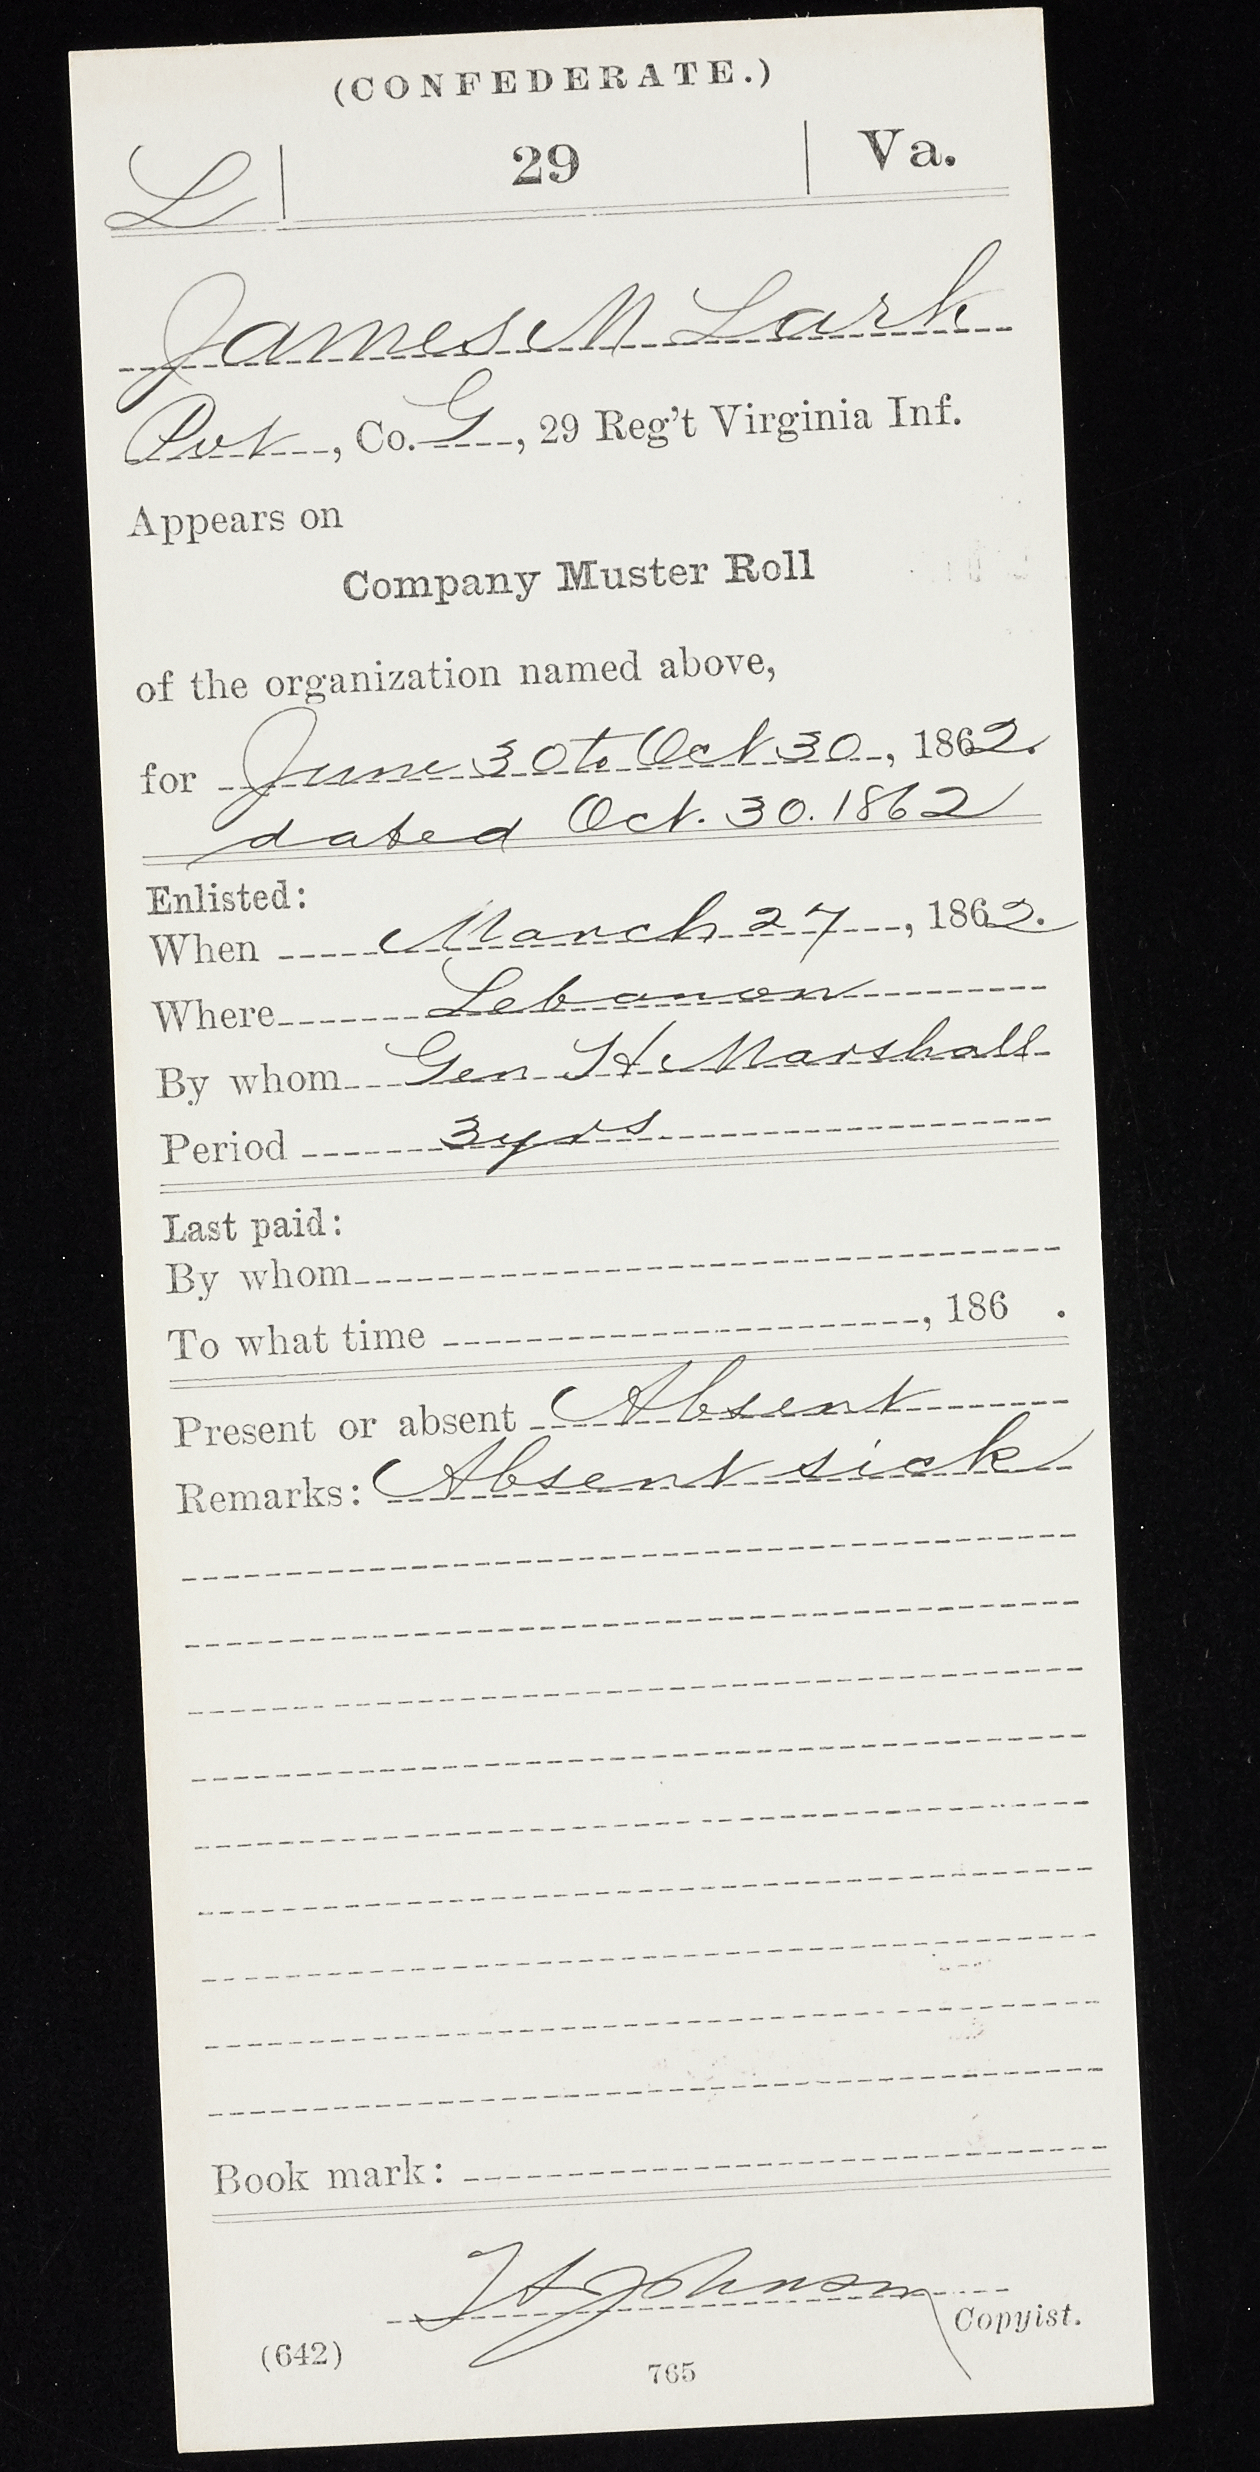 (CONFEDERATE.)
L | 29 | Va.
James M Lark
Pvt, Co. G, 29 Reg't Virginia Inf.
Appears on
Company Muster Roll
of the organization named above,
for June 30 to Oct 30, 1862.
dated Oct. 30. 1862
Enlisted:
When March 27, 1862.
Where Lebanon
By whom Gen H Marshall
Period 3 yrs
Last paid:
By whom
To what time , 186 .
Present or absent Absent
Remarks: Absent sick
Book mark:
Johnson
Copyist.
(642)
765